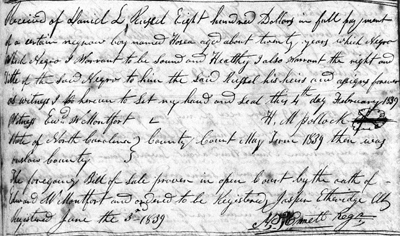 Received of Daniel L Russel Eight hundred Dollars in full payment
of a certain negrow boy named Hosea aged about twenty years which Negro
Which Negro I Warrant to be Sound and Healthy I also warrant the right and
title of the Said Negro to him the Said Russel his heirs and assigns forever
as witness I do hereunto Set my hand and Seal this 4th day February 1839
Witness Edwd W Montfort H. M Pollock
State of North Carolina } County Court May Term 1839 then was
onslow County
The foregoing Bill of Sale proven in open Court by the oath of
Edward W Montfort and ordered to be Registered Jasper Etheridge Clk
Registered June the 3d 1839
Regtr